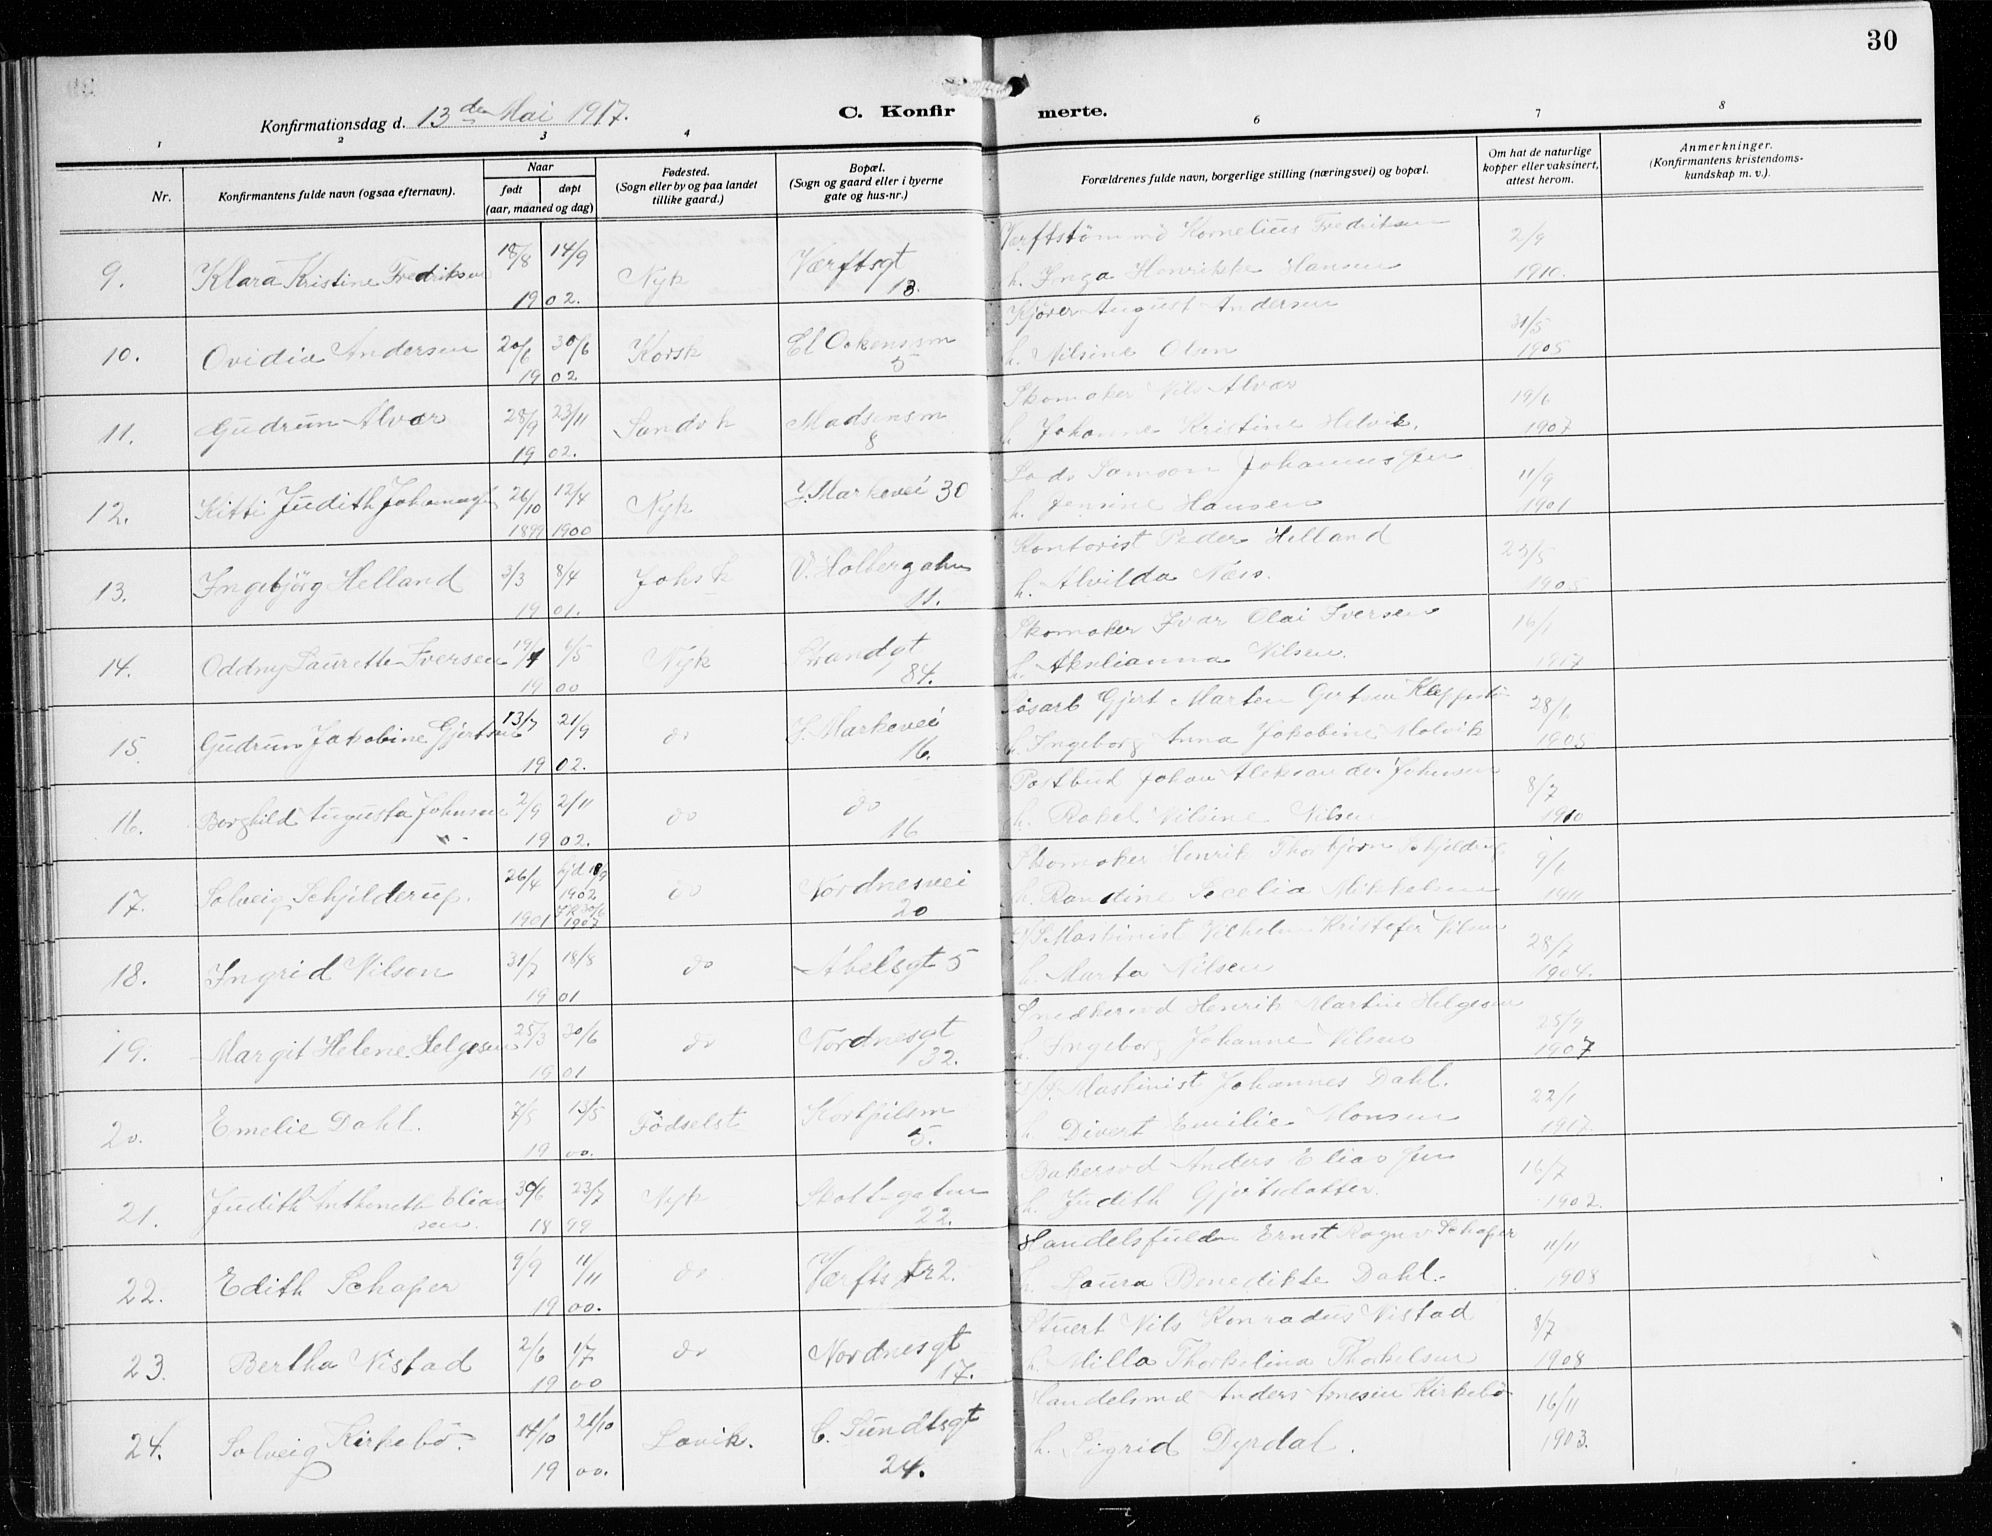 30
Konfirmationsdag d. 13 den Mai 1917.
C. Konfirmerte.
1 2 3 4 6 7 8
Nr.
Konfirmantens fulde navn (ogsaa efternavn).
Naar
født døpt
(aar, maaned og dag)
Fødested.
(Sogn eller by og paa landet
tillike gaard.)
Bopæl.
(Sogn og gaard eller i byerne
gate og hus-nr.)
Forældrenes fulde navn, borgerlige stilling (næringsvei) og bopæl.
Om hat de naturlige
kopper eller vaksinert,
attest herom.
Anmerkninger.
(Konfirmantens kristendoms-
kundskap m. v.).
9. Klara Kristine Fredriksen 18/8 14/9 1902. Nyk Værftsgt 13. Kornelius Fredriksen
h. Inga Henrikke Hansen 2/9 1910.
10. Ovidia Andersen 20/6 30/6 1902. Korsk 5 Kjører August Andersen
h. Nilsine Olsen 31/5 1905
11. Gudrun Alvær 28/9 23/11 1902. Sandvk Madsensm 8 Skomaker Nils Alvær
h. Johanne Kristine Helvik. 19/6 1907
12. Kitti Judith 26/10 12/4 1899 1900 Nyk Markevei 30 Samson
h. Jensine Hansen 11/9 1901
13. Ingebjörg Helland 3/3 8/4 1901. Johsk 11. Kontorist Peder Helland
h. Alvilda Næss. 25/5 1905
14. Oddny Laurette Iversen 6/5 1900 Nyk Strandgt 84. Skomaker Ivar Olai Iversen
h. Nilsen. 16/1 1917
15. Gudrun Jakobine Gjertsen 13/7 21/9 1902. do Markevei 16. Gjert Marten
h. Ingeborg Anna Jakobine Molvik 28/6 1905
16. Borghild Augusta Johnsen 2/9 2/11 1902. do do 16 Postbud Johan Aleksander Johnsen
h. Rakel Nilsine Nilsen 8/7 1910
17. Solveig Schjilderup. 26/4 1901 1902 30/6 1907 do Nordnesvei 20 Skomaker Henrik Thorbjørn
h. Randine Secelia Mikkelsen 9/1 1911
18. Ingrid Nilsen 31/7 18/8 1901 do Abelsgt 5 Maskinist Vilhelm Kristofer Nilsen
h. Marta Nilsen 28/7 1904.
19. Margit Helene Helgesen 25/3 30/6 1901 do Nordnesgt 32. Snedkersvd Henrik Martin Helgesen
h. Ingeborg Johanne Nilsen 25/9 1907
20. Emelie Dahl. 7/5 13/5 1900. Födselst Kortpilsm 5. Maskinist Johannes Dahl.
h. Divert Emilie Monsen 22/1 1917.
21. Judith Anthonette Eliassen. 30/6 23/7 1899 Nyk Skottegaten 22. Bakersvd Anders
h. Judith Gjertsdatter. 16/7 1902.
22. Edith Schaper 9/9 11/11 1900. do 2. Ernst Schaper
h. Laura Benedikte Dahl. 11/11 1908
23. Bertha Nistad 2/6 1/7 1900 do Nordnesgt 17. Stuert Nils Konradus Nistad
h. Milla Thorkelina Thorkelsen 8/7 1908
24. Solveig Kirkebö. 14/10 21/10 1900. Lavik. C. Sundtsgt 24. Handelsmd Anders Kirkebö
h. Sigrid Dyrdal. 16/11 1903.